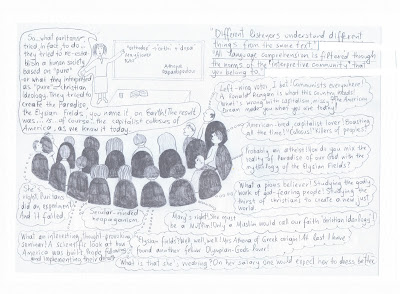 So...what puritans
tried in fact to do...
they tried to re-esta-
blish a human society
based on "pure"
or what they interpreted
as "pure" christian
ideology. They tried to
create the Paradise,
the Elysian fields, you name it, on Earth! The result
was... is of course the capitalist culture of
America, as we know it today.
Mayflower
"Different listeners understand different
things from the same text".
"All language comprehension is filtered through
the norms of the "interpretive community" that
you belong to."
Left-wing voter, I bet! Communists everywhere!
A "comeback" Reagan is what this country needs!
What's wrong with capitalism, miss? The American
Dream made you whom you are today!
American-bred capitalist lover! Boasting
at the time! "Odious" killers of peoples!
Probably an atheist! How do you mix the
reality of Paradise of our God with the
mythology of the Elysian Fields?
What a pious believer! Studying the godly
work of God-fearing people! Studying the
thirst of christians to create a new just
world.
She's
right. Puritanism
did an experiment.
And it failed.
Secular-minded
neopaganism.
Mary's right! She must
be a Muslim! Only a Muslim would call our faith "christian ideology"!
What an interesting, thought-provoking
seminar! A scientific look at how
America was built. People following
and implementing their dream
Elysian fields? Well, well, well! Yes Athena of Greek origin! At last I have
found another fellow Olympian-Gods Power!
What is that she's wearing? On her salary one would expect her to dress better